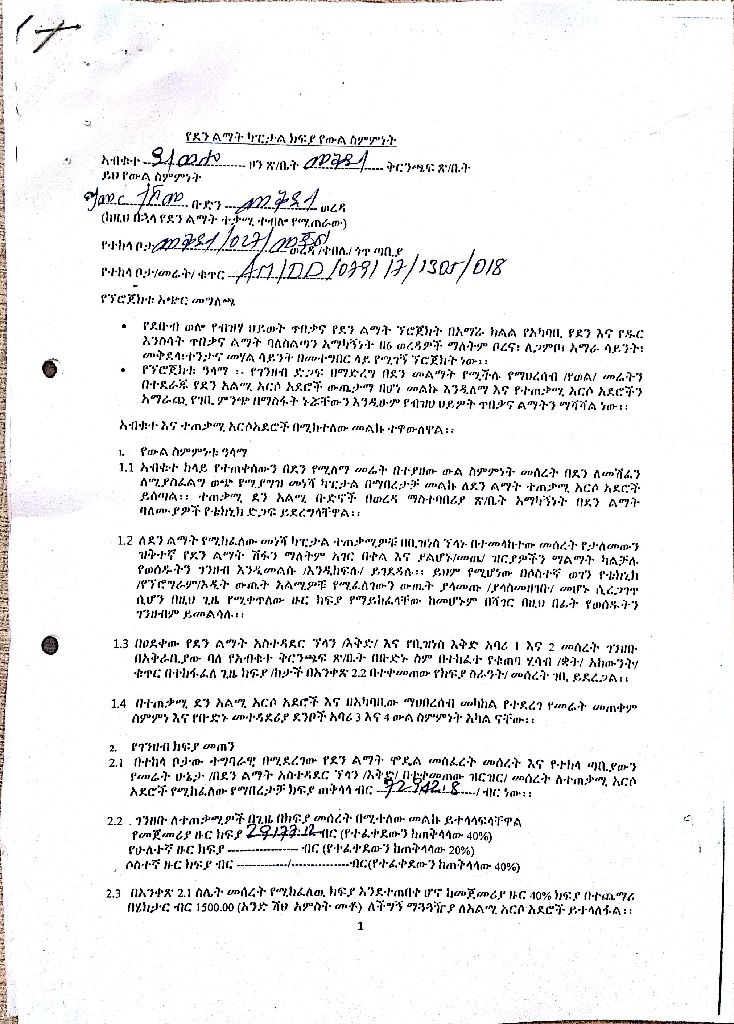 የደን ልማት ካፒታል ክፍያ የውል ስምምነት
አብቁተ ---------- ዞን ጽ/ቤት መቅደላ ቅርንጫፍ ጽ/ቤት
ይህ የውል ስምምነት
ቡድን መቅደላ ወረዳ
(ከዚህ በኋላ የደን ልማት ተቃሚ ተብሎ የሚጠራው)
የተከላ ቦታ መቅደላ/027/ ወረዳ/ቀበሌ/ጎጥ ጣቢያ
የተከላ ቦታ/መሬት/ ቁጥር AM/DD/079/17/1305/018
የፕሮጀክቱ አጭር መግለጫ
• የደቡብ ወሎ የብዝሃ ህይወት ጥበቃና የደን ልማት ፕሮጀክት በአማራ ክልል የአካባቢ የደን እና የዱር
እንስሳት ጥበቃና ልማት ባለስልጣን አማካኝነት በ6 ወረዳዎች ማለትም ቦረና፣ ለጋምቦ፣ አማራ ሳይንት፣
መቅደላ፣ተንታና መሃል ሳይንት በመተግበር ላይ የሚገኝ ፕሮጀክት ነው፡፡
• የፕሮጀክቱ ዓላማ ፡- የገንዘብ ድጋፍ በማድረግ በደን መልማት የሚችሉ የማህረሰብ /የወል/ መሬትን
በተደራጁ የደን አልሚ አርሶ አደሮች ውጤታማ በሆነ መልኩ እንዲለማ እና የተጠቃሚ አርሶ አደሮችን
አማራጪ የገቢ ምንጭ በማስፋት ኑሯቸውን እንዲሁም የብዝሀ ህይዎት ጥበቃና ልማትን ማሻሻል ነው፡፡
አብቁተ እና ተጠቃሚ አርሶአደሮች በሚከተለው መልኩ ተዋውለዋል፡፡
1. የውል ስምምነቱ ዓላማ
1.1 አብቁተ ከላይ የተጠቀሰውን በደን የሚለማ መሬት በተያዘው ውል ስምምነት መሰረት በደን ለመሸፈን
ለሚያስፈልግ ወጭ የሚያግዝ መነሻ ካፒታል በማበረታቻ መልኩ ለደን ልማት ተጠቃሚ አርሶ አደሮች
ይሰጣል፡፡ ተጠቃሚ ደን አልሚ ቡድኖች በወረዳ ማስተባበሪያ ጽ/ቤት አማካኝነት በደን ልማት
ባለሙያዎች የቴክኒክ ድጋፍ ይደረግላቸዋል፡፡
1.2 ለደን ልማት የሚከፈለው መነሻ ካፒታል ተጠቃሚዎቹ በቢዝነስ ፕላኑ በተመላከተው መሰረት የታለመውን
ዝቅተኛ የደን ልማት ሽፋን ማለትም አገር በቀል እና ያልሆኑ/መጤ/ ዝርያዎችን ማልማት ካልቻሉ
የወሰዱትን ገንዘብ እንዲመልሱ /እንዲከፍሉ/ ይገደዳሉ፡፡ ይህም የሚሆነው በሶስተኛ ወገን የቴክኒክ
/የፕሮግራም/ኦዲት ውጤት አልሚዎቹ የሚፈለገውን ውጤት ያላመጡ /ያላስመዘገቡ/ መሆኑ ሲረጋገጥ
ሲሆን በዚህ ጊዜ የሚቀጥለው ዙር ክፍያ የማይከፈላቸው ከመሆኑም በሻገር ከዚህ በፊት የወሰዱትን
ገንዘብም ይመልሳሉ፡፡
1.3 በፀደቀው የደን ልማት አስተዳደር ፕላን /እቅድ/ እና የቢዝነስ እቅድ አባሪ 1 እና 2 መሰረት ገንዘቡ
በአቅራቢያው ባለ የአብቁተ ቅርንጫፍ ጽ/ቤት በቡድኑ ስም በተከፈተ የቁጠባ ሂሳብ /ቋት/ አካውንት/
ቁጥር በተከፋፈለ ጊዜ ክፍያ /ከታች በአንቀጽ 2.2 በተቀመጠው የክፍያ ስራዓት/ መሰረት ገቢ ይደረጋል፡፡
1.4 በተጠቃሚ ደን አልሚ አርሶ አደሮች እና በአካባቢው ማህበረሰብ መካከል የተደረገ የመሬት መጠቀም
ስምምነ እና የቡድኑ መተዳደሪያ ደንቦች አባሪ 3 እና 4 ውል ስምምነት አካል ናቸው፡፡
2. የገንዘብ ክፍያ መጠን
2.1 በተከላ ቦታው ተግባራዊ በሚደረገው የደን ልማት ሞዴል መስፈረት መሰረት እና የተከላ ጣቢያውን
የመሬት ሁኔታ /በደን ልማት አስተዳደር ፕላን /እቅድ/ በተቀመጠው ዝርዝር/ መሰረት ለተጠቃሚ አርሶ
አደሮች የሚከፈለው የማበረታቻ ክፍያ ጠቅላላ ብር 72942.8 / ብር ነው፡፡
2.2 ገንዘቡ ለተጠቃሚዎች በጊዜ በክፍያ መሰረት በሚተለው መልኩ ይተላለፍላቸዋል
የመጀመሪያ ዙር ክፍያ 29177.12 ብር (የተፈቀደውን ከጠቅላላው 40%)
የሁለተኛ ዙር ክፍያ ---------------- ብር (የተፈቀደውን ከጠቅላላው 20%)
ሶስተኛ ዙር ክፍያ ብር ------------/--------------ብር(የተፈቀደውን ከጠቅላላው 40%)
2.3 በአንቀጽ 2.1 ስሌት መሰረት የሚከፈለዉ ክፍያ እንደተጠበቀ ሆኖ ከመጀመሪያ ዙር 40% ክፍያ በተጨማሪ
በሄክታር ብር 1500.00 (አንድ ሽህ አምስት መቶ) ለችግኝ ማጓጓዣያ ለአልሚ አርሶ አደሮች ይተላለፋል፡፡
1